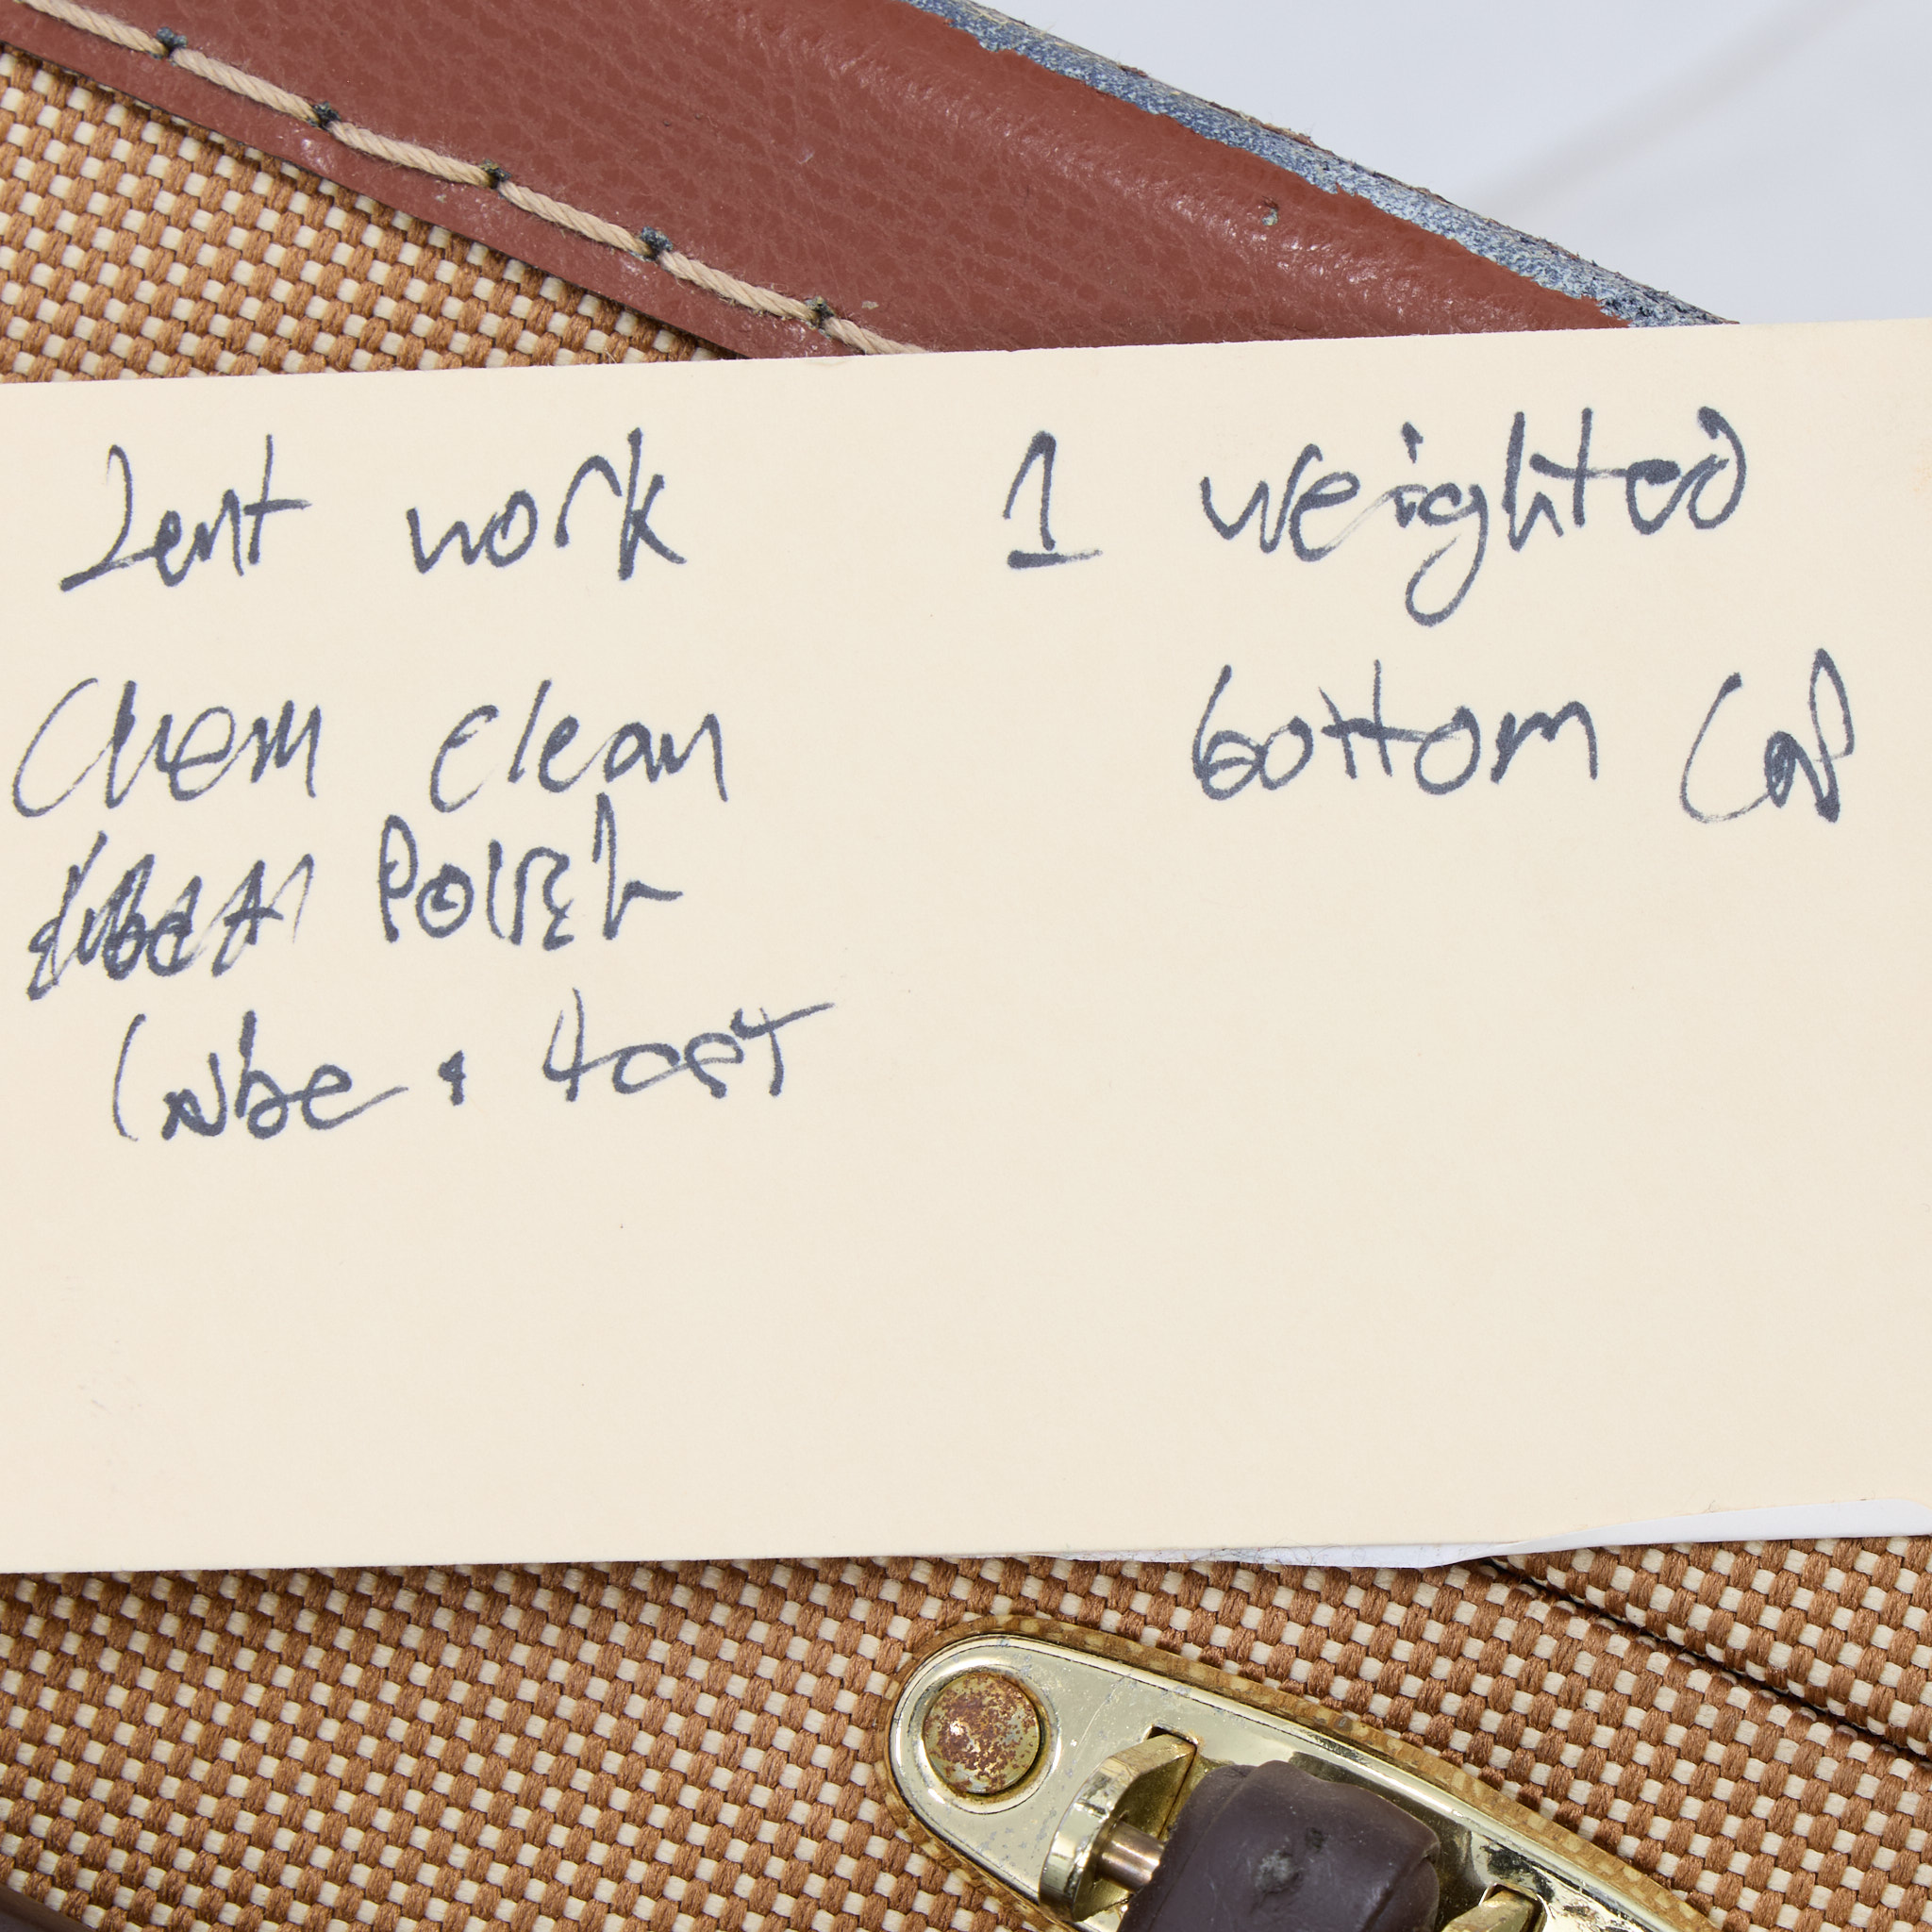 Dent work
Chem clean
Polish
Lube & test
1 weighted
bottom cap